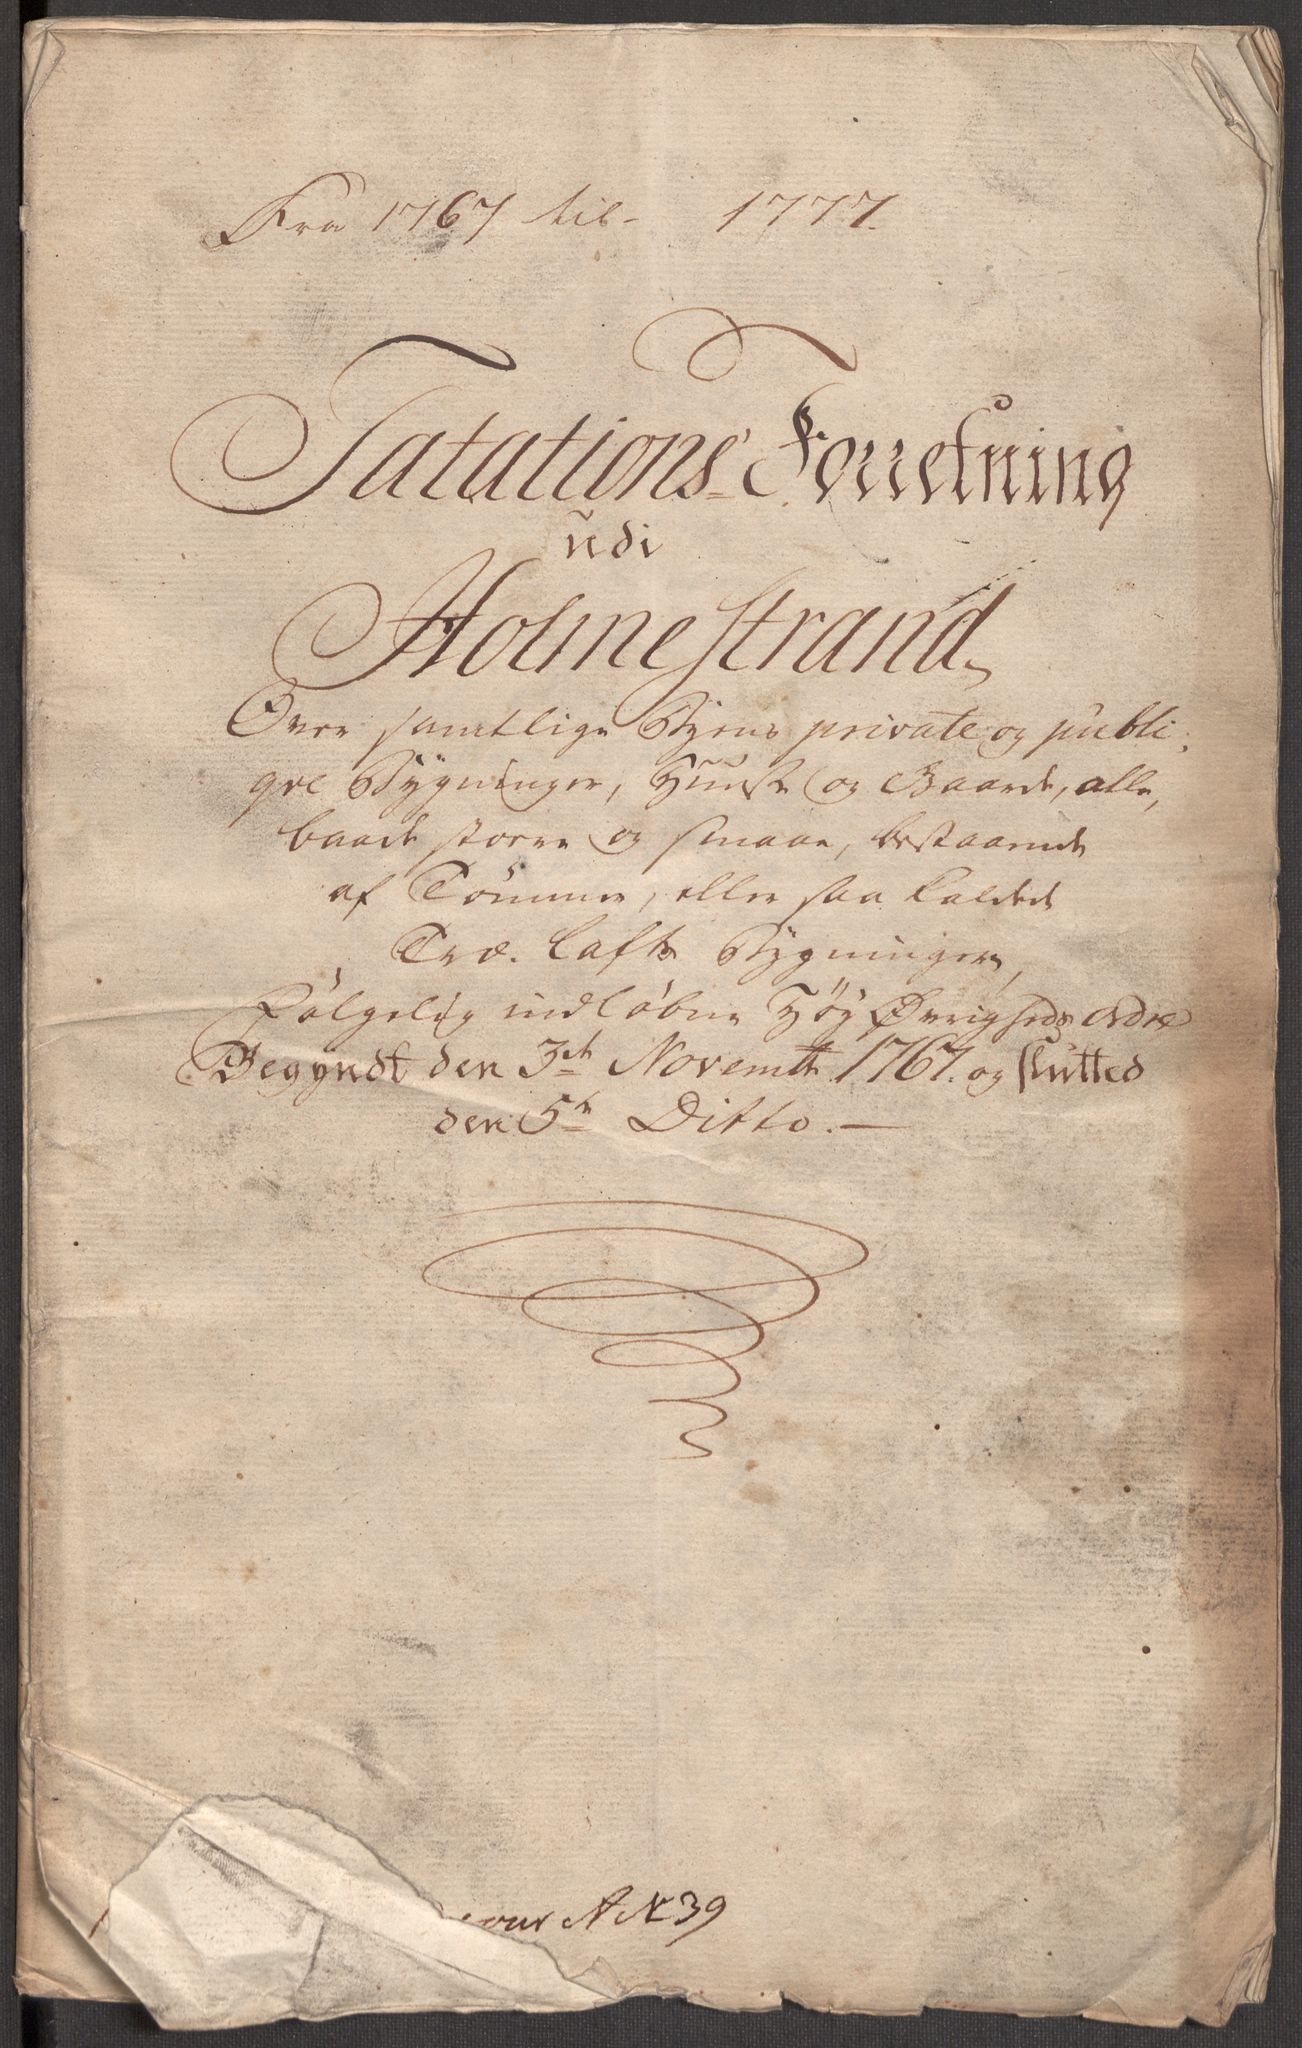 Fra 1767 til 1777.
Taxations-Forretning
udi
Holmestrand
Over samtlige Byens private og publi-
qve Bygninger, Huuse og Gaarde, alle,
baade store og smaae, bestaaende
af Tömmer, eller saa kaldede
Træ-lafte Bygninger,
Fölgelig indløbne Høy Øvrigheds ordre
Begyndt den 3de Novembr 1767. og slutted
den 5te Ditto.—
A No 39